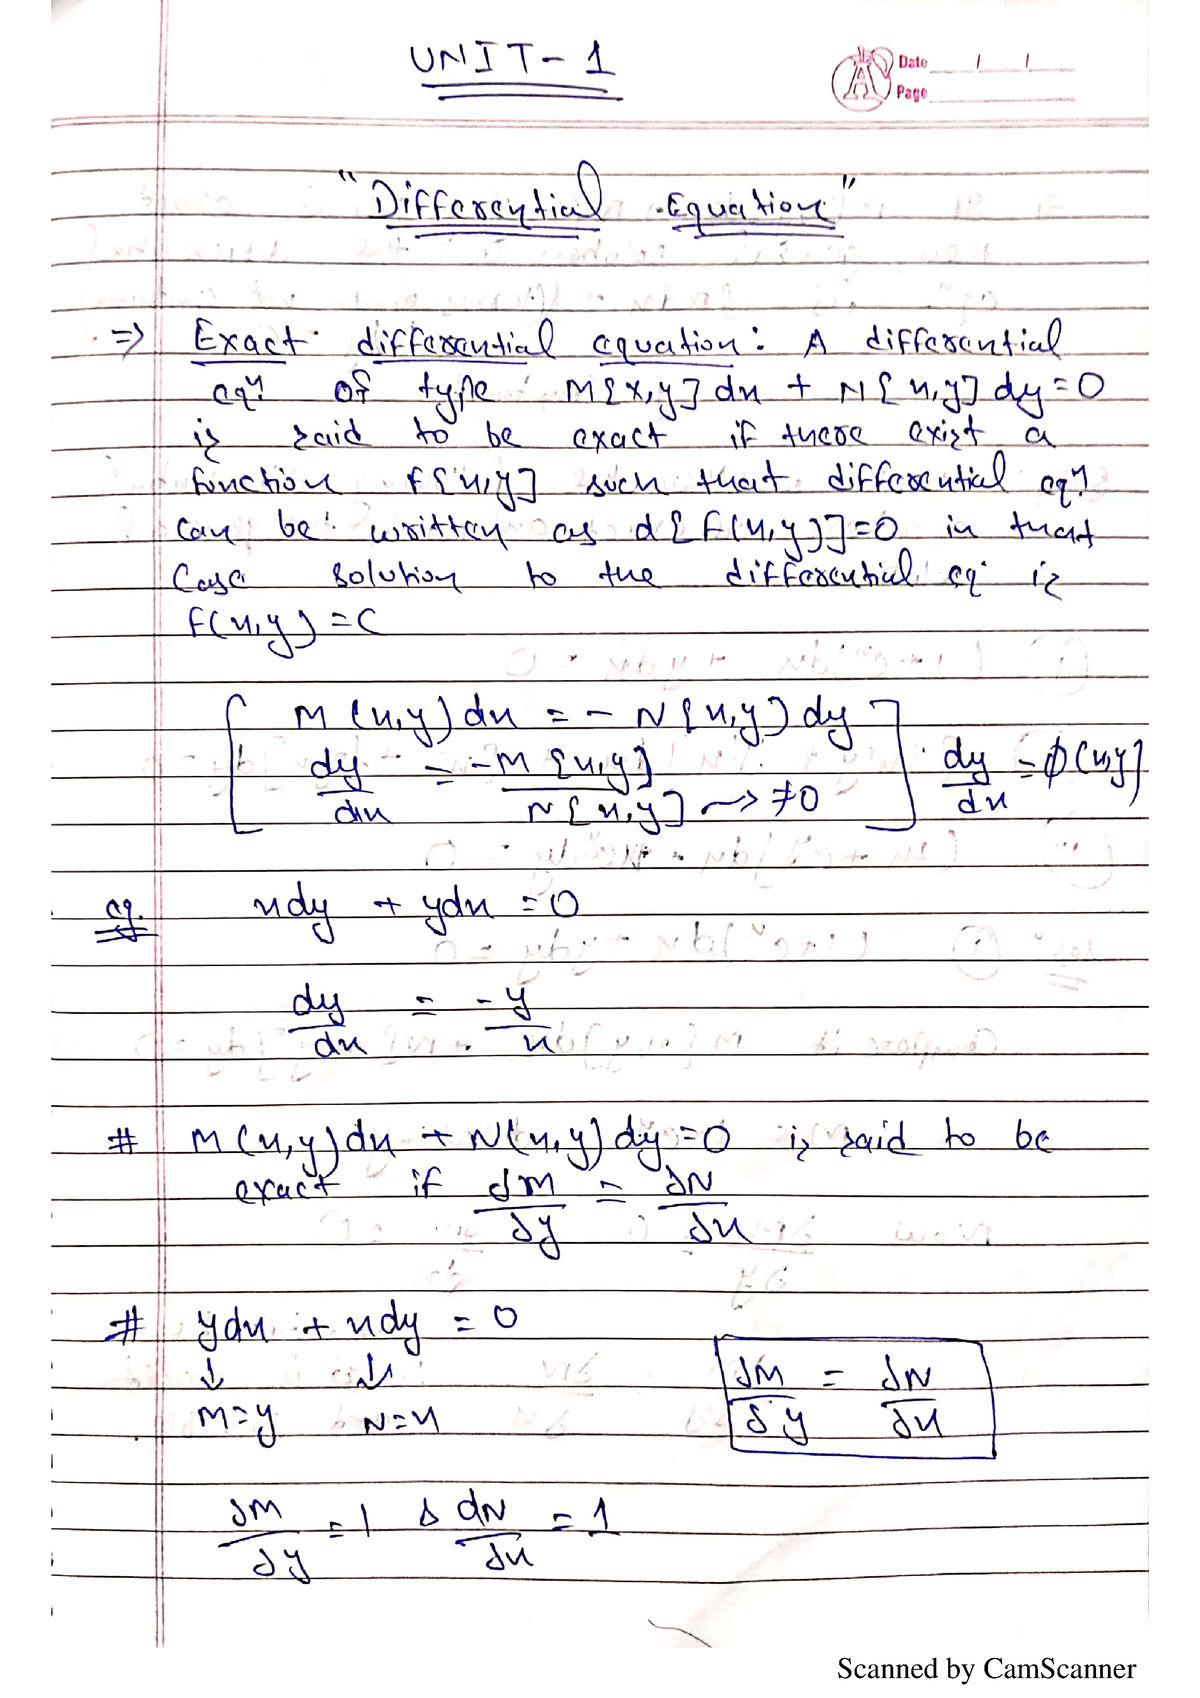 UNIT-1
Date / /
Page
"Differential Equation"
=> Exact differential equation: A differential
eqn of type M[x,y]dx + N[x,y]dy=0
is said to be exact if there exist a
function f[x,y] such that differential eqn
can be written as d[f(x,y)]=0 in that
case solution to the differential eq. is
f(x,y)=C
M(x,y)dx = -N[x,y)dy
dy/dx = -M[x,y]/N[x,y] ~> ≠0
dy/dx = φ(x,y]
eg. xdy + ydx = 0
dy/dx = -y/x
# M(x,y)dx + N(x,y)dy=0 is said to be
exact if ∂M/∂y = ∂N/∂x
# ydx + xdy = 0
↓ ↓
M=y N=x
∂M/∂y = ∂N/∂x
∂M/∂y = 1 & dN/∂x = 1
Scanned by CamScanner